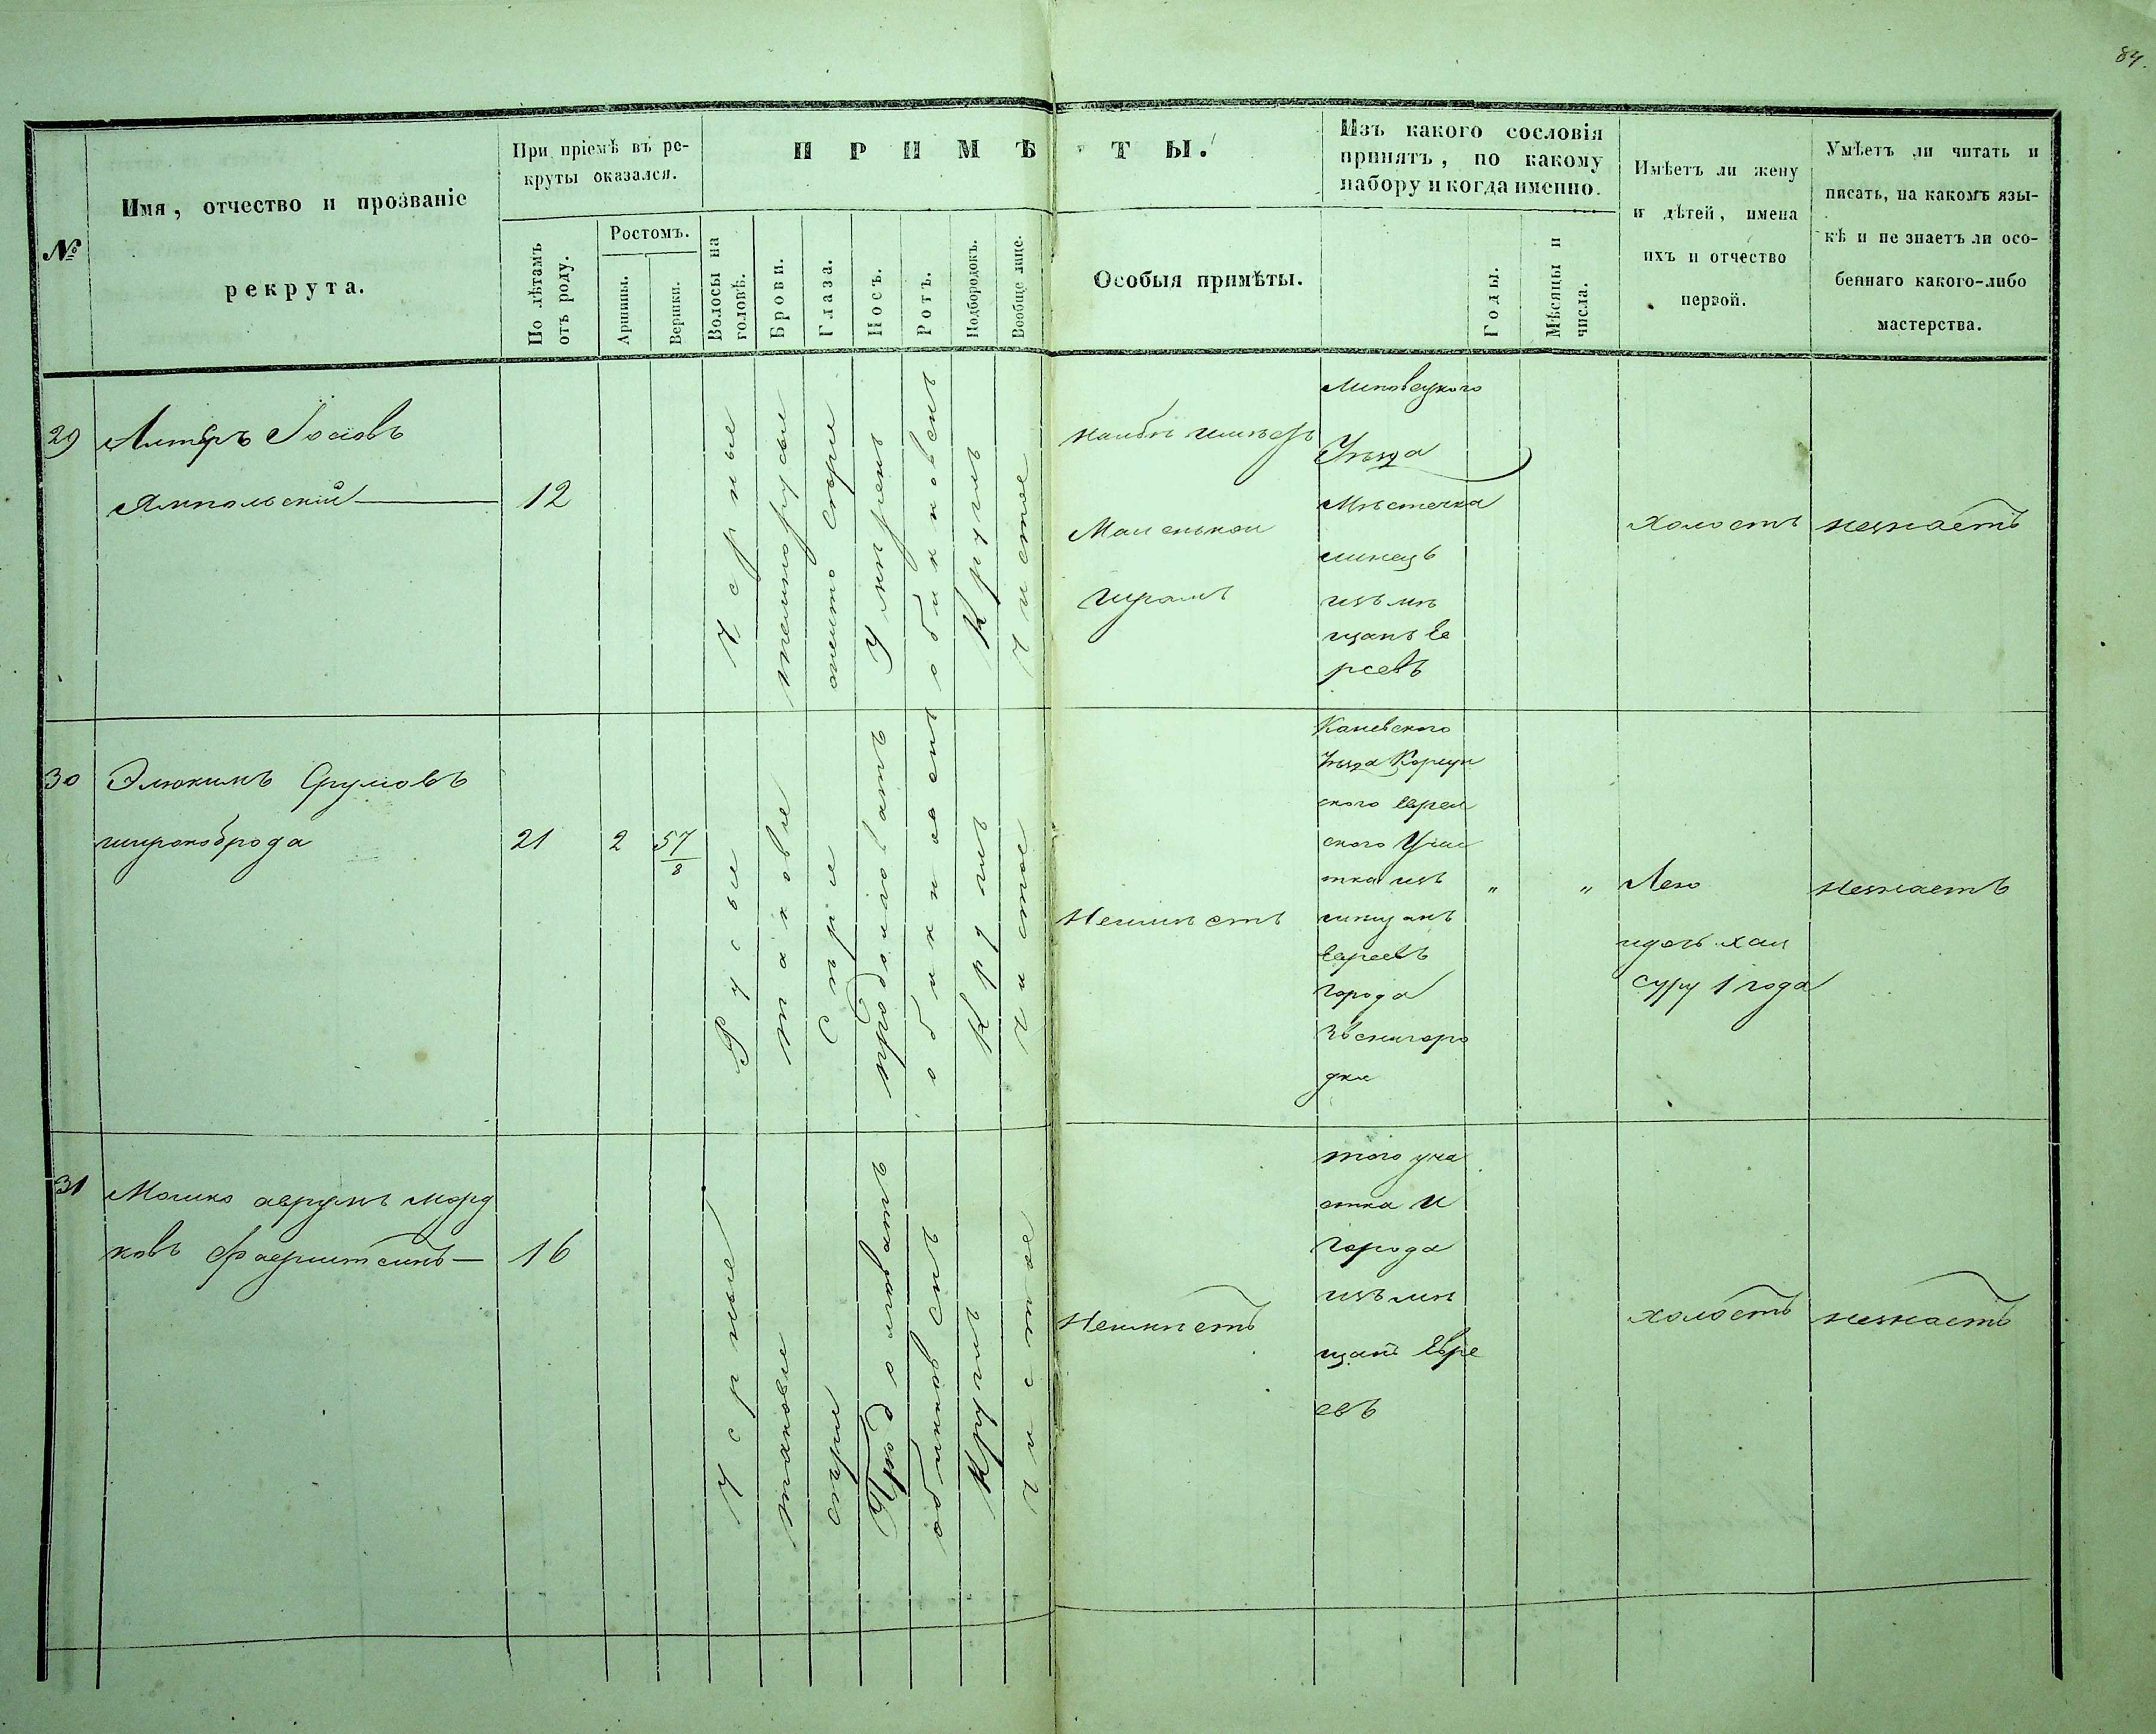 84.
№
Имя, отчество и прозваніе
рекрута.
При пріемѣ въ ре-
круты оказался.
По лѣтамъ
отъ роду.
Ростомъ.
Аршины.
Вершки.
ПРИМѢТЫ.
Волосы на
головѣ.
Брови.
Глаза.
Носъ.
Ротъ.
Подбородокъ.
Вообще лице.
Особыя примѣты.
Изъ какого сословія
принятъ, по какому
набору и когда именно.
Годы.
Мѣсяцы и
числа.
Имѣетъ ли жену
и дѣтей, имена
ихъ и отчество
первой.
Умѣетъ ли читать и
писать, на какомъ язы-
кѣ и не знаетъ ли осо-
беннаго какого-либо
мастерства.
29
Алтеръ Іосіовъ
Ямпольскій
12
Черные
темнорусые
сѣрые
Умѣренъ
обикновенъ
Круглъ
чистое
Маленькои
шрамъ
Липовецкого
Уѣзда
Мѣстечка
линецъ
изъ мѣ
щанъ Ев
реевъ
холостъ
незнаетъ
30
Элюкимъ Сруліовъ
широкоброда
21
2
5 7/8
Русые
таковые
Сѣрые
продолговатъ
обикновенъ
Круглъ
чистое
Неимѣетъ
Каневского
Уѣзда Корсун
ского еврей
ского Учас
тка изъ
мѣщанъ
Евреевъ
города
Звенигоро
дки
"
"
Суру 1 года
незнаетъ
31
Мошко аврумъ морд
ковъ Фаерштеинъ
16
Черные
таковые
сѣрые
Продолговатъ
обикновенъ
Круглъ
чистое
Неимѣетъ
того уча
стка и
города
изъ мѣ
щанъ Евре
евъ
холостъ
незнаетъ